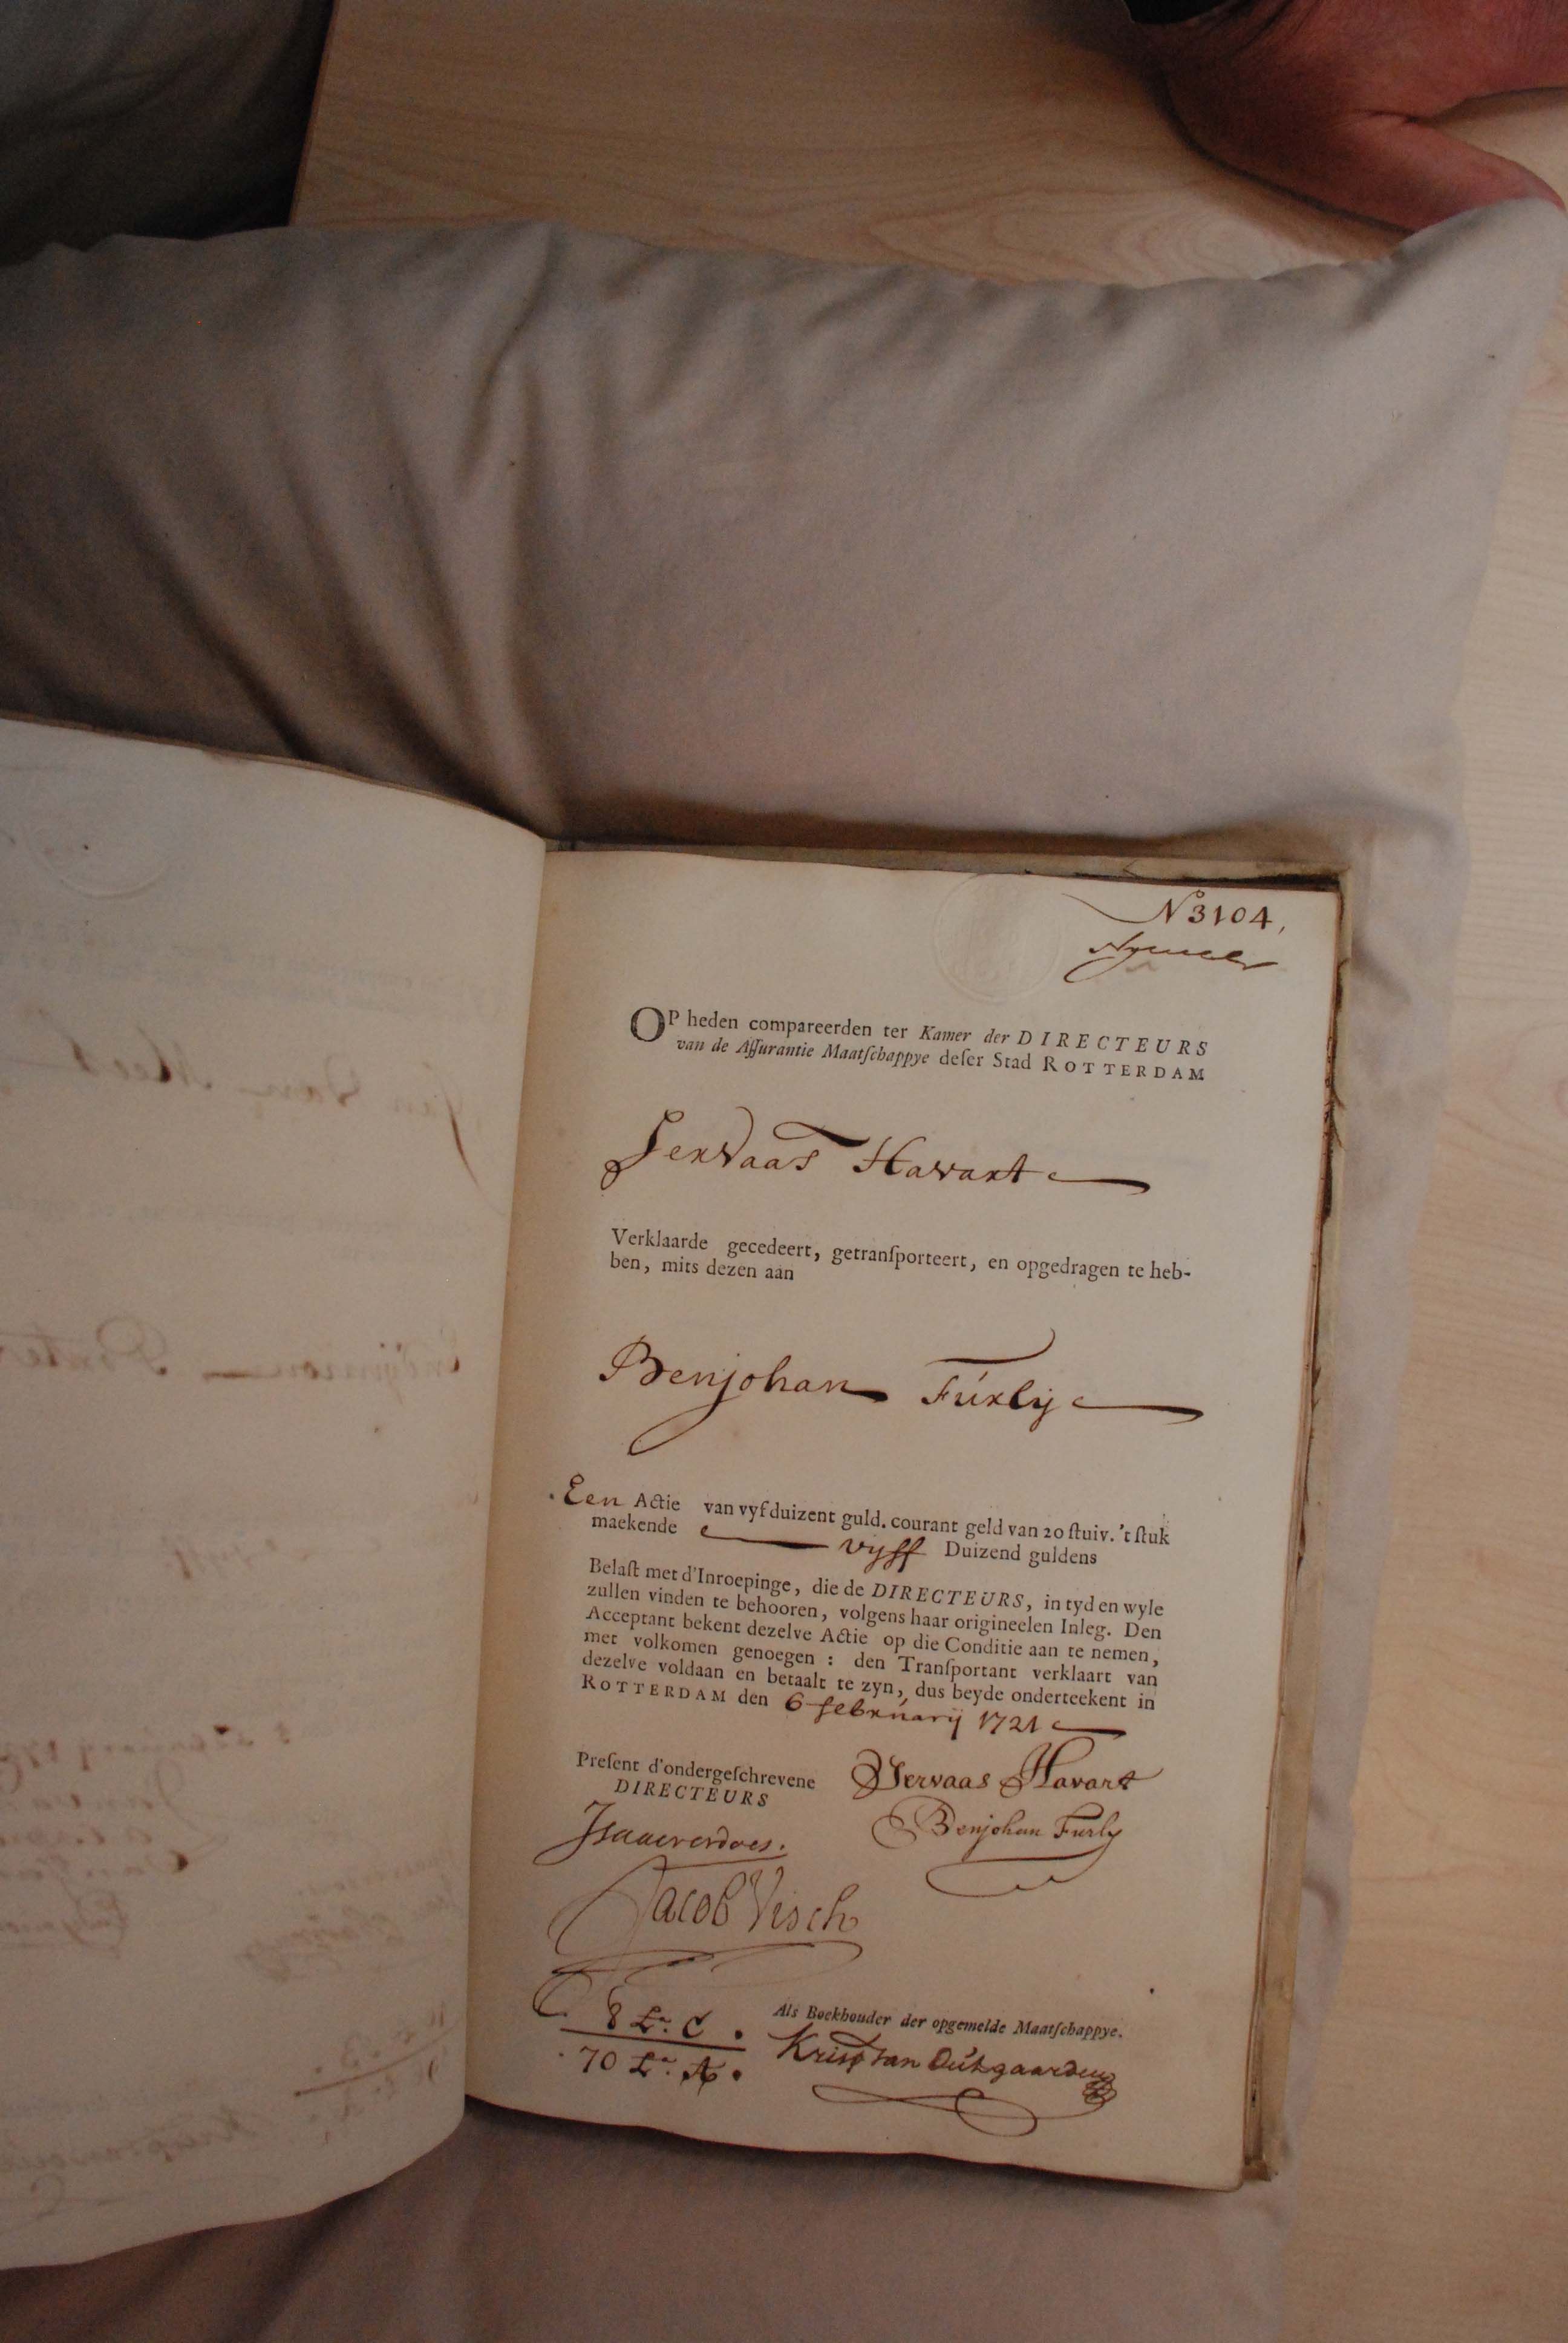 No 3104,
OP heden compareerden ter Kamer der DIRECTEURS
van de Aſſurantie Maatſchappye deſer Stad ROTTERDAM
Servaas Havart
Verklaarde gecedeert, getranſporteert, en opgedragen te heb-
ben, mits dezen aan
Benjohan Fúrly
Een Actie van vyfduizent guld. courant geld van 20 ſtuiv. 't ſtuk
maekende vyff Duizend guldens
Belaſt met d'Inroepinge, die de DIRECTEURS, in tyd en wyle
zullen vinden te behooren, volgens haar origineelen Inleg. Den
Acceptant bekent dezelve Actie op die Conditie aan te nemen,
met volkomen genoegen : den Tranſportant verklaart van
dezelve voldaan en betaalt te zyn, dus beyde onderteekent in
ROTTERDAM den 6 febrúarij 1721
Preſent d'ondergeſchrevene
DIRECTEURS
Servaas Havart
Benjohan Furly
Jacob Visch
8 Lr. C.
70 Lr. A.
Als Boekhouder der opgemelde Maatſchappye.